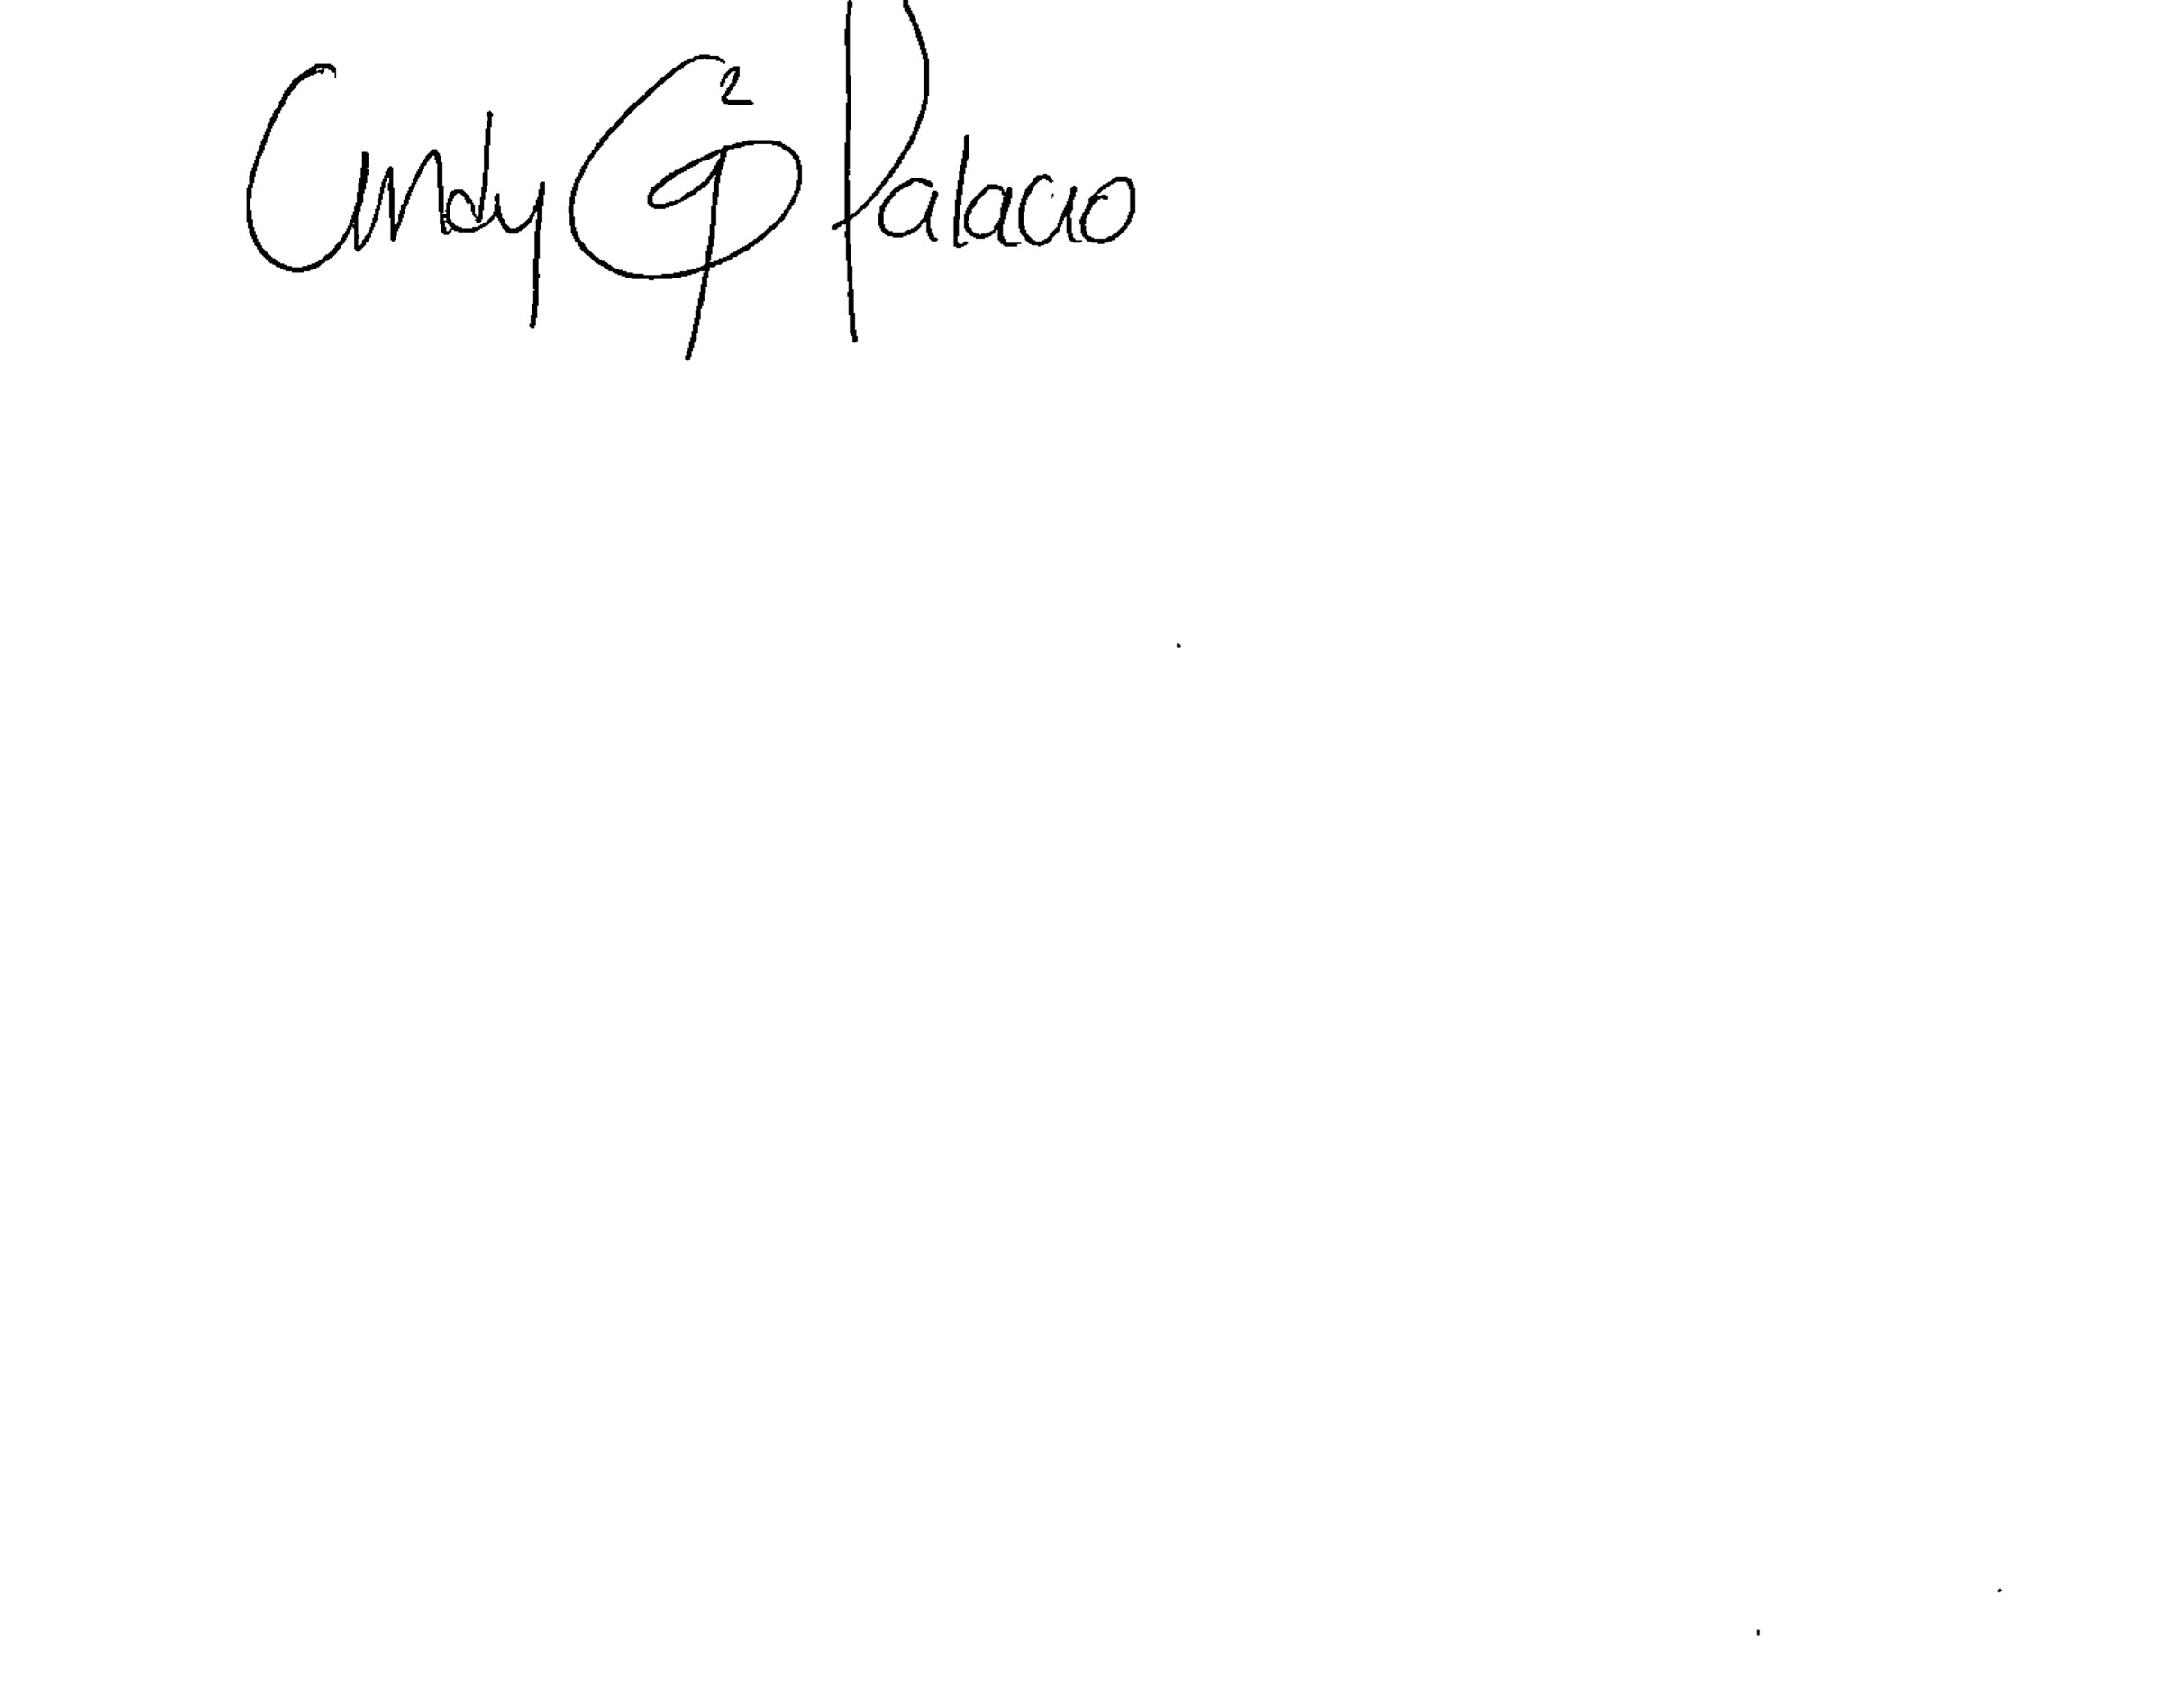 Cindy G² Palacio